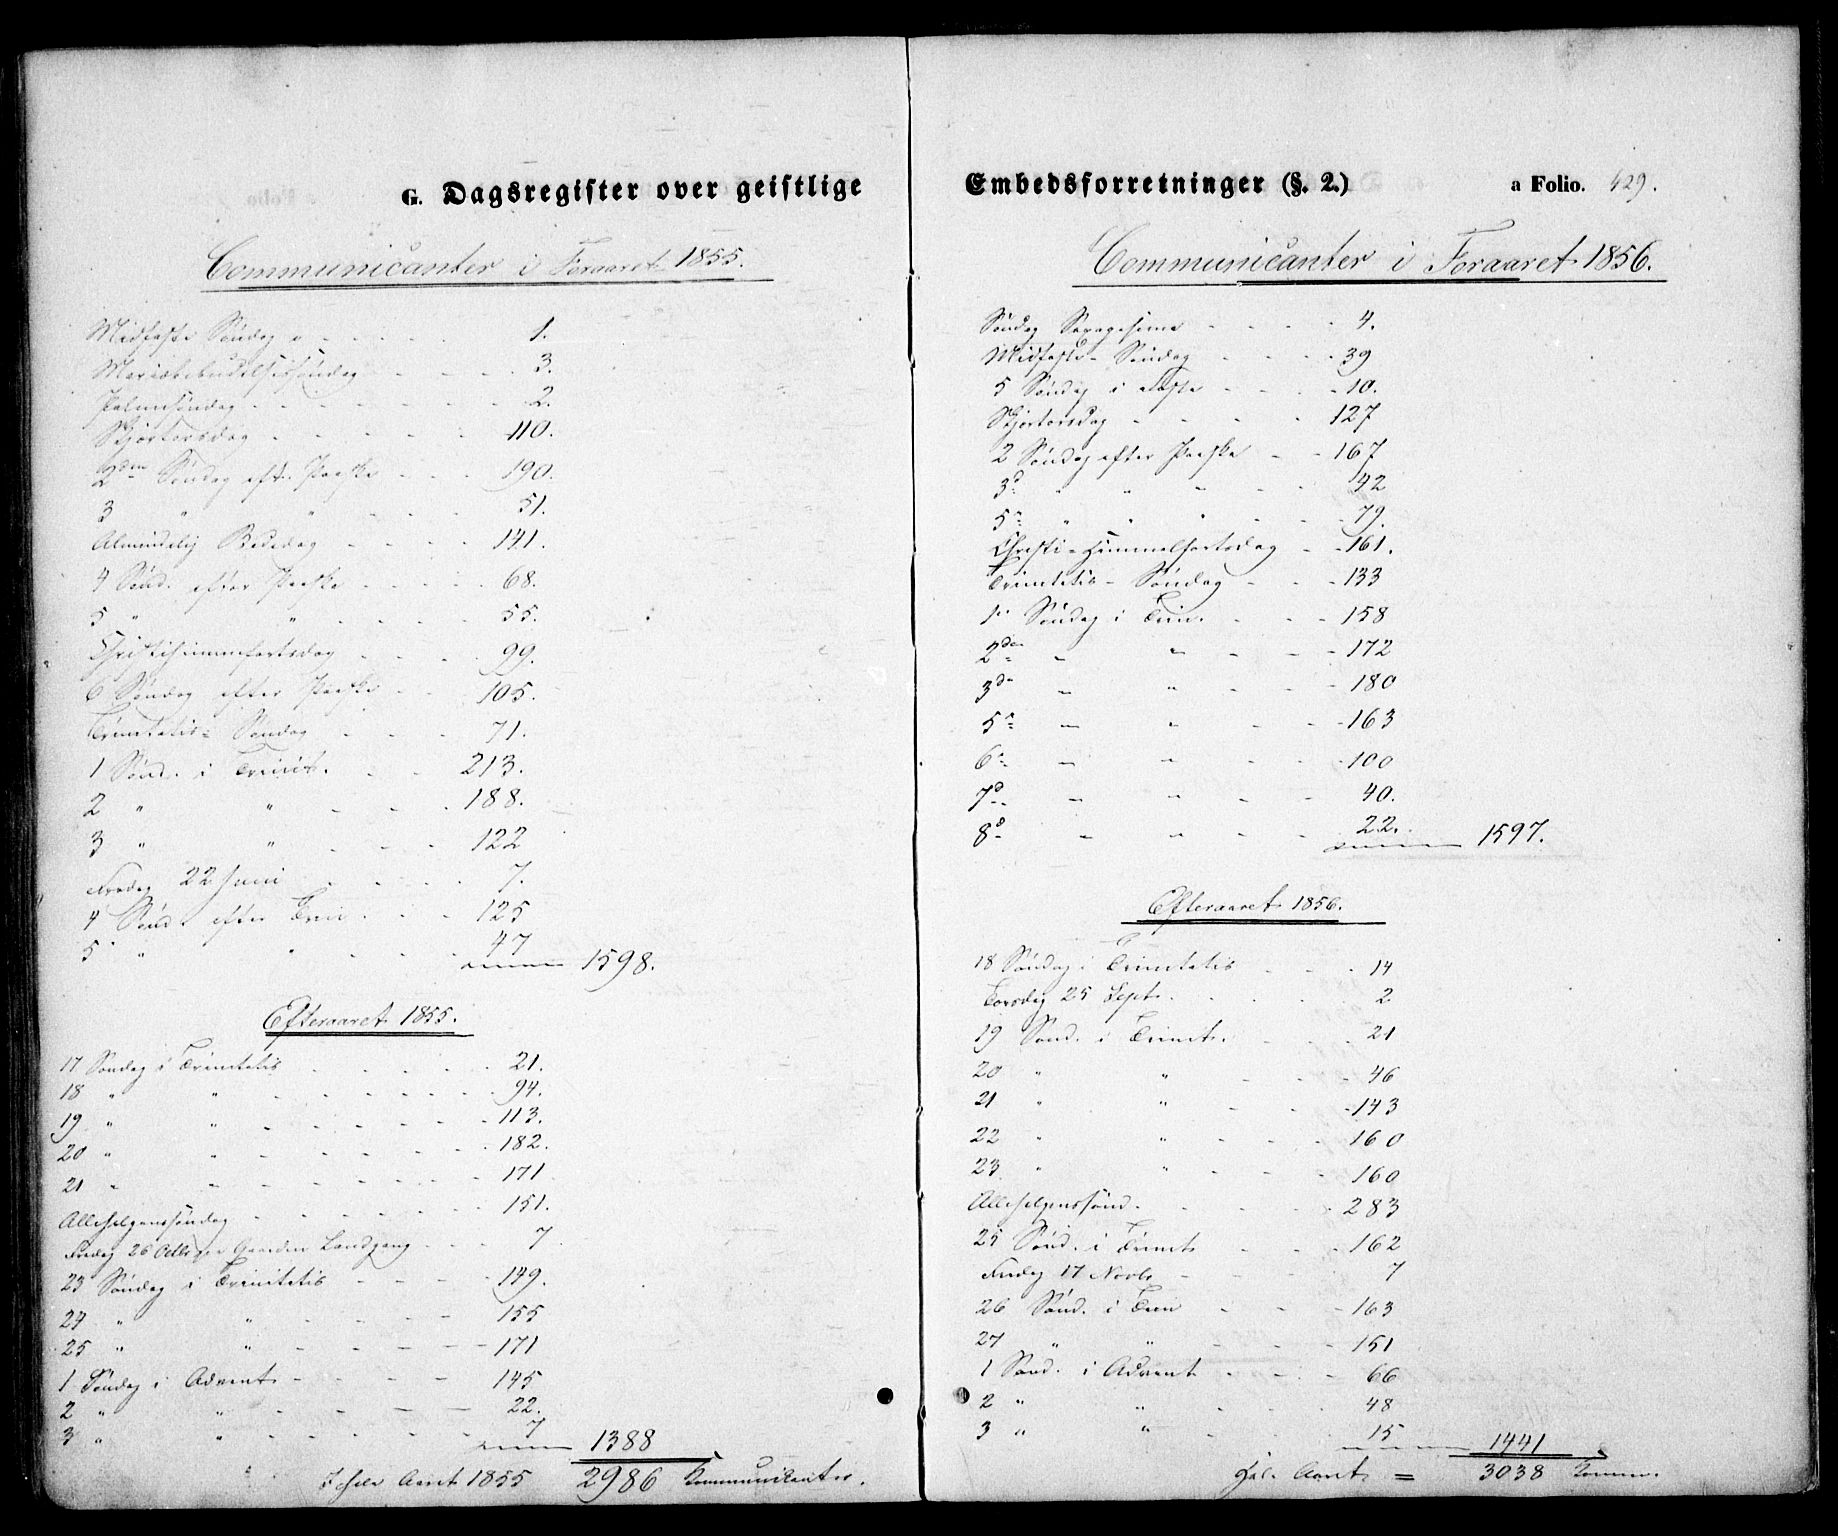 G. Dagsregister over geistlige
Communicanter i Foraaret 1855.
Midfaste Søndag - - - - 1.
Mariæbebudelsessøndag - - - 3.
Palmesøndag - - - - - - - 2.
Skjærtorsdag - - - - - 110.
2den Søndag eft. Paaske - - - 190.
3 " " - - - 51.
Almindelig Bededag - - - - 141.
4 Sønd. efter Paaske - - - - 68.
5 " " - - - 55.
Christihimmelfartsdag - - - - 99.
6 Søndag efter Paaske - - - 105.
Trinitatis- Søndag - - - 71.
1 Sønd. i Trinit. - - 213.
2 " " - - - 188.
3 " " - - - 122
Fredag 22 Juni - - - - 7.
4 Sønd. efter Trin. - - 125
5 " " - - - 47
1598.
Efteraaret 1855.
17 Søndag i Trinitatis - - - - - 21.
18 " " - - - - - - 94.
19 " " - - - - - - 113.
20 " " - - - - - - 182.
21 " " - - - - - 171
Allehelgenssøndag - - - - - - 151.
Fredag 26 Octbr Landgang - - - 7
23 Søndag i Trinitatis - - - - 149.
24 " " - - - - 155
25 " " - - - - 171
1 Søndag i Advent - - - - 145
2 " " - - - - 22.
3 " " - - - - - 7
1388
I hele Aaret 1855 2986 Kommunikanter.
Embedsforretninger (§. 2.)
a Folio. 429.
Communicanter i Foraaret 1856.
Søndag - - - - 4.
Midfaste- Søndag - - - - 39
5 Søndag i Faste - - - - 10.
Skjærtorsdag - - - - 127
2 Søndag efter Paaske - - 167
3d " " " - - 42
5 " " " - - - 79.
Christi-Himmelfartsdag - - 161.
Trinitatis- Søndag - - - 133
1 Søndag i Trin. - - - 158
2den " " - - - 172
3d " " - - - 180
5 " " - - - 163
6 " " - - - 100
7d " " - - 40.
8d " " - - 22.
1597.
Efteraaret 1856.
18 Søndag i Trinitatis - - - 14
Torsdag 25 Sept. - - - - 2
19 Sønd. i Trinit. - - - 21
20 " " - - - 46
21 " " - - - 143
22 " " - - - 160
23 " " - - - 160
Allehelgenssønd. - - - - 283
25 Sønd. i Trinit - - - 162
Fredag 17 Novbr - - - - 7
26 Sønd. i Trin - - - 163
27 " " - - - 151
1 Sønd. i Advent - - - 66
2 " " - - - 48
3 " " - - - 15
1441
Hele Aaret = 3038 Komm.